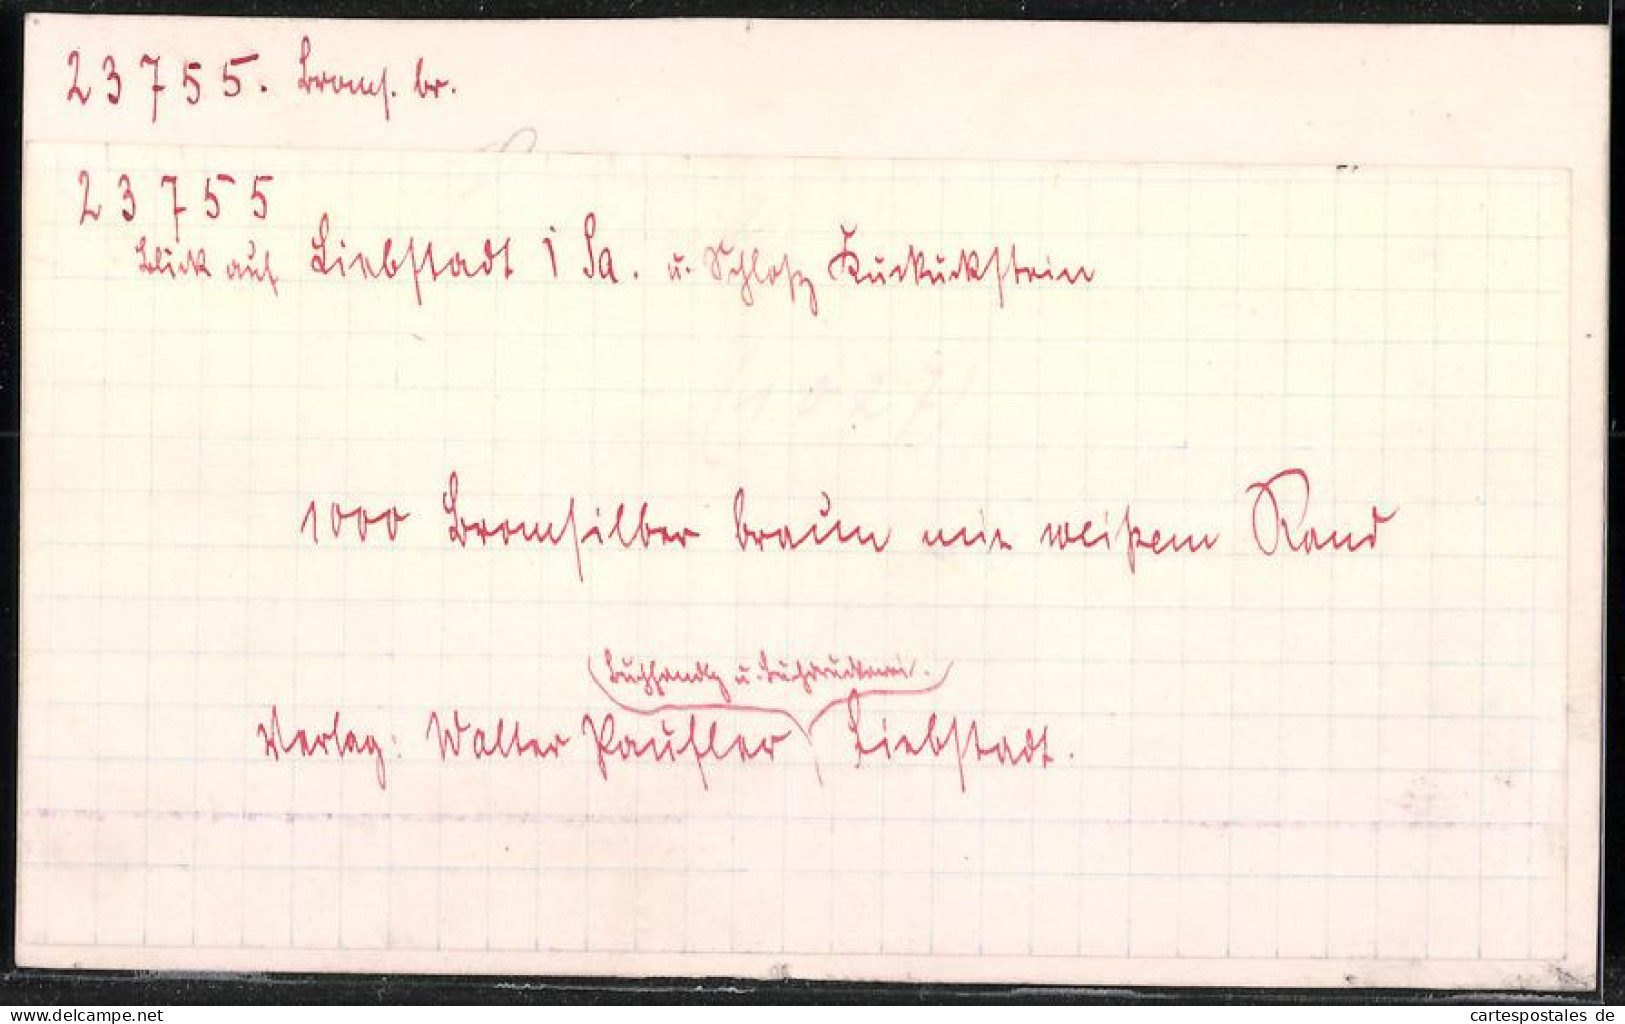 23755. Broms. br.
23755
Blick auf Liebstadt i Sa. u. Schloß Kuckuckstein
1000 Bromsilber braun mit weißem Rand
(Buchhandlg u. Buchdruckerei.)
Verlag: Walter Paufler, Liebstadt.
www.ansichtskarten-center.de
cartespostales de